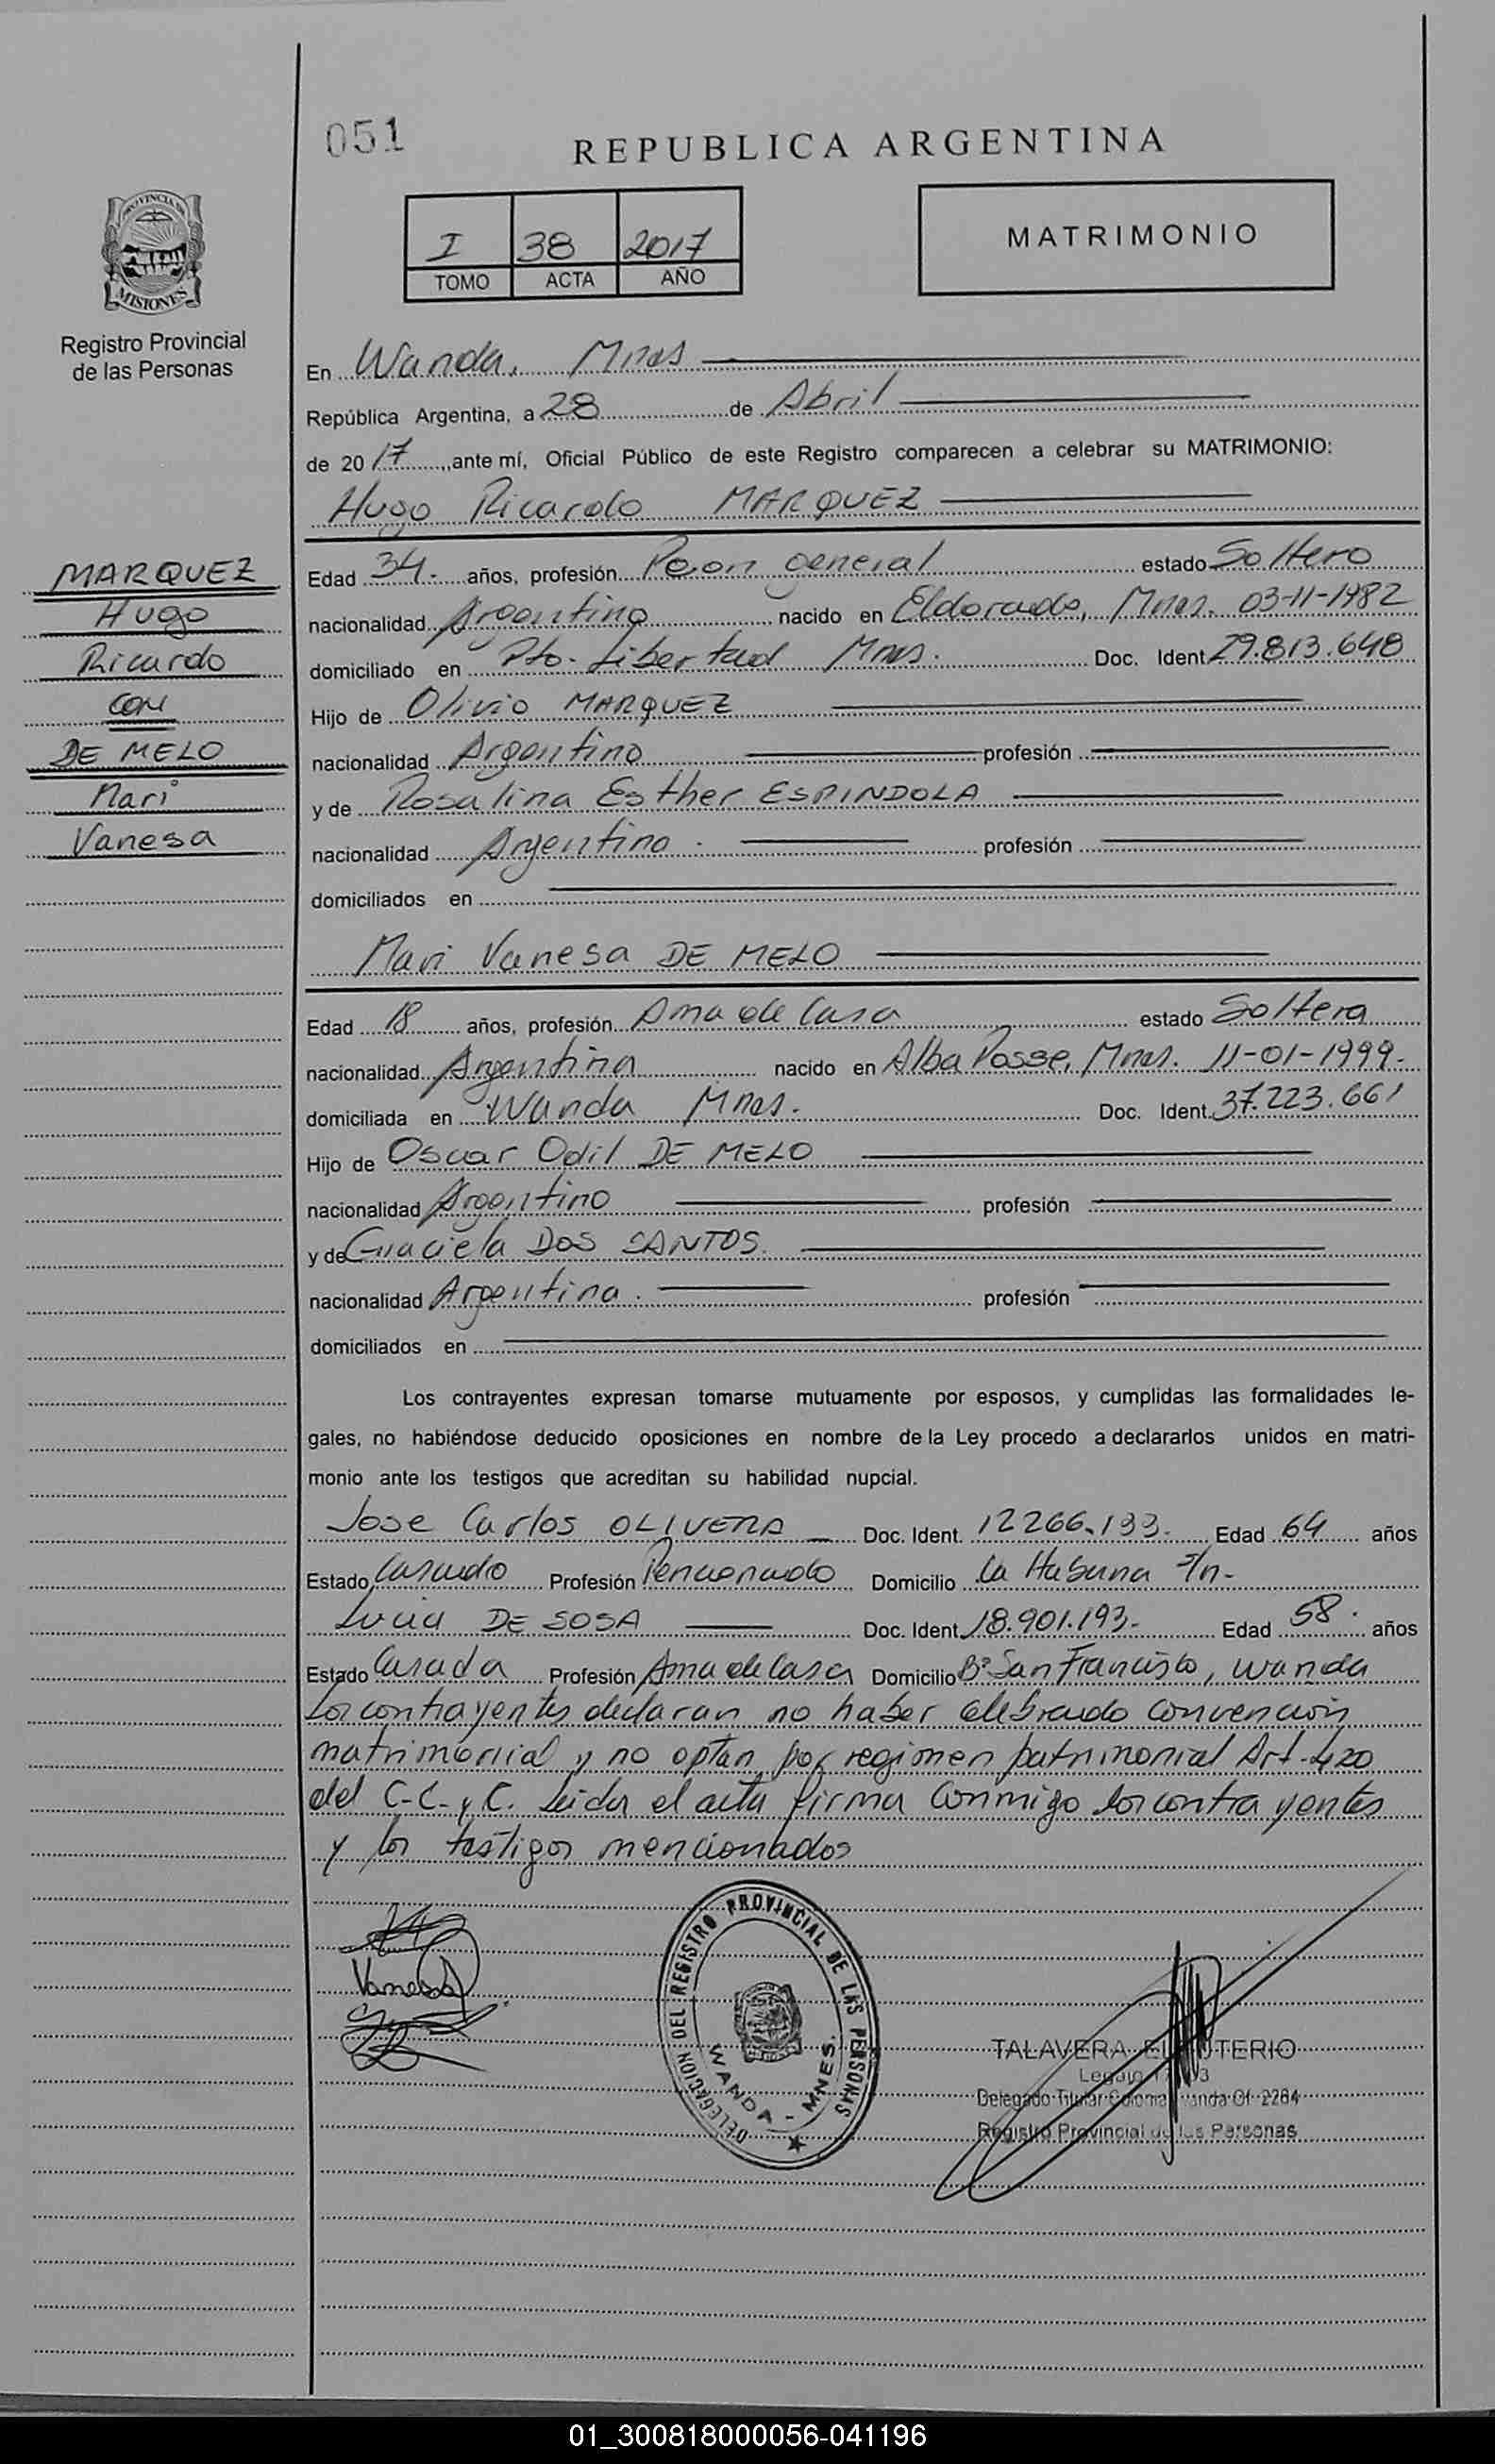 051
REPUBLICA ARGENTINA
I 38 2017
TOMO ACTA AÑO
MATRIMONIO
PROVINCIA DE
MISIONES
Registro Provincial
de las Personas
En Wanda, Mnes
República Argentina, a 28 de Abril
de 2017, ante mí, Oficial Público de este Registro comparecen a celebrar su MATRIMONIO:
Hugo Ricardo MARQUEZ
MARQUEZ
Hugo
Ricardo
CON
DE MELO
Mari
Vanesa
Edad 34. años, profesión Peon general estado Soltero
nacionalidad Argentino nacido en Eldorado, Mnes. 03-11-1982
domiciliado en Pto. Libertad Mnes. Doc. Ident 29.813.648
Hijo de Olivio MARQUEZ
nacionalidad Argentino profesión
y de Rosalina Esther ESPINDOLA
nacionalidad Argentina. profesión
domiciliados en
Mari Vanesa DE MELO
Edad 18 años, profesión Ama de Casa estado Soltera
nacionalidad Argentina nacido en Alba Posse, Mnes. 11-01-1999.
domiciliada en Wanda Mnes. Doc. Ident. 37.223.661
Hijo de Oscar Odil DE MELO
nacionalidad Argentino profesión
y de Graciela DOS SANTOS.
nacionalidad Argentina. profesión
domiciliados en
Los contrayentes expresan tomarse mutuamente por esposos, y cumplidas las formalidades le-
gales, no habiéndose deducido oposiciones en nombre de la Ley procedo a declararlos unidos en matri-
monio ante los testigos que acreditan su habilidad nupcial.
Jose Carlos OLIVERA Doc. Ident. 12266.193. Edad 64 años
Estado Casado Profesión Pencionado Domicilio La Habana S/n-
Lucia DE SOSA Doc. Ident. 18.901.193. Edad 58. años
Estado Casada Profesión Ama de Casa Domicilio Bº San Francisco, Wanda
Los contrayentes declaran no haber celebrado convencion
matrimonial y no optan por regimen patrimonial Art. 420
del C.C. y C. Leida el acta firma conmigo los contrayentes
y los testigos mencionados
Vanesa
DELEGACION DEL REGISTRO PROVINCIAL DE LAS PERSONAS
WANDA - MNES.
TALAVERA
Delegado Titular Colonia Wanda Of. 2284
Registro Provincial de las Personas
01_300818000056-041196